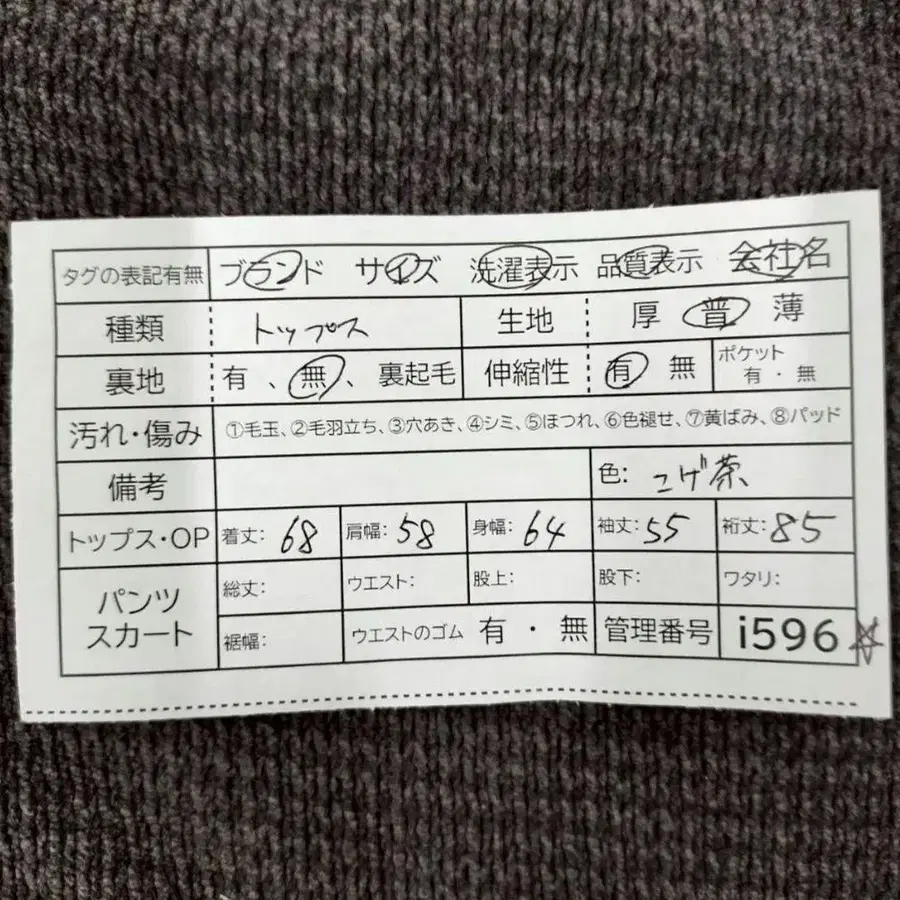 タグの表記有無 ブランド サイズ 洗濯表示 品質表示 会社名
種類 トップス 生地 厚 普 薄
裏地 有、無、裏起毛 伸縮性 有 無 ポケット 有・無
汚れ・傷み ①毛玉、②毛羽立ち、③穴あき、④シミ、⑤ほつれ、⑥色褪せ、⑦黄ばみ、⑧パッド
備考 色: こげ茶
トップス・OP 着丈: 68 肩幅: 58 身幅: 64 袖丈: 55 裄丈: 85
パンツ スカート 総丈: ウエスト: 股上: 股下: ワタリ:
裾幅: ウエストのゴム 有・無 管理番号 i596